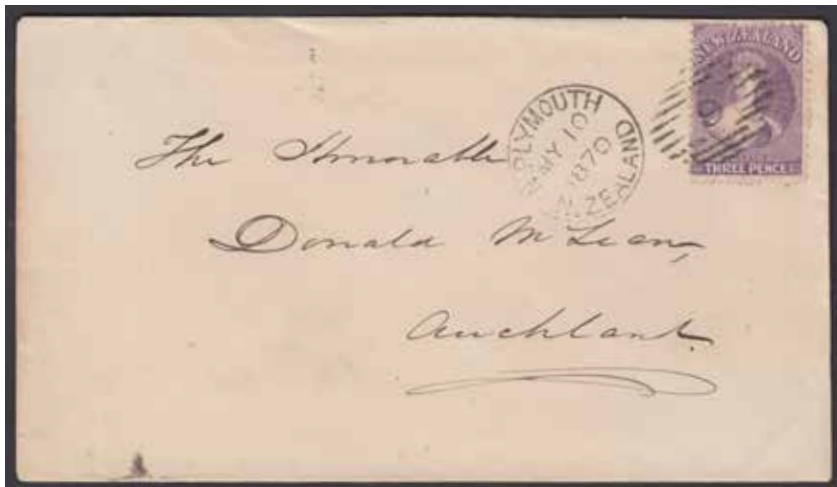 NEW ZEALAND
THREE PENCE
PLYMOUTH
MY 10
1870
N. ZEALAND
The Honorable
Donald McLean,
Auckland.